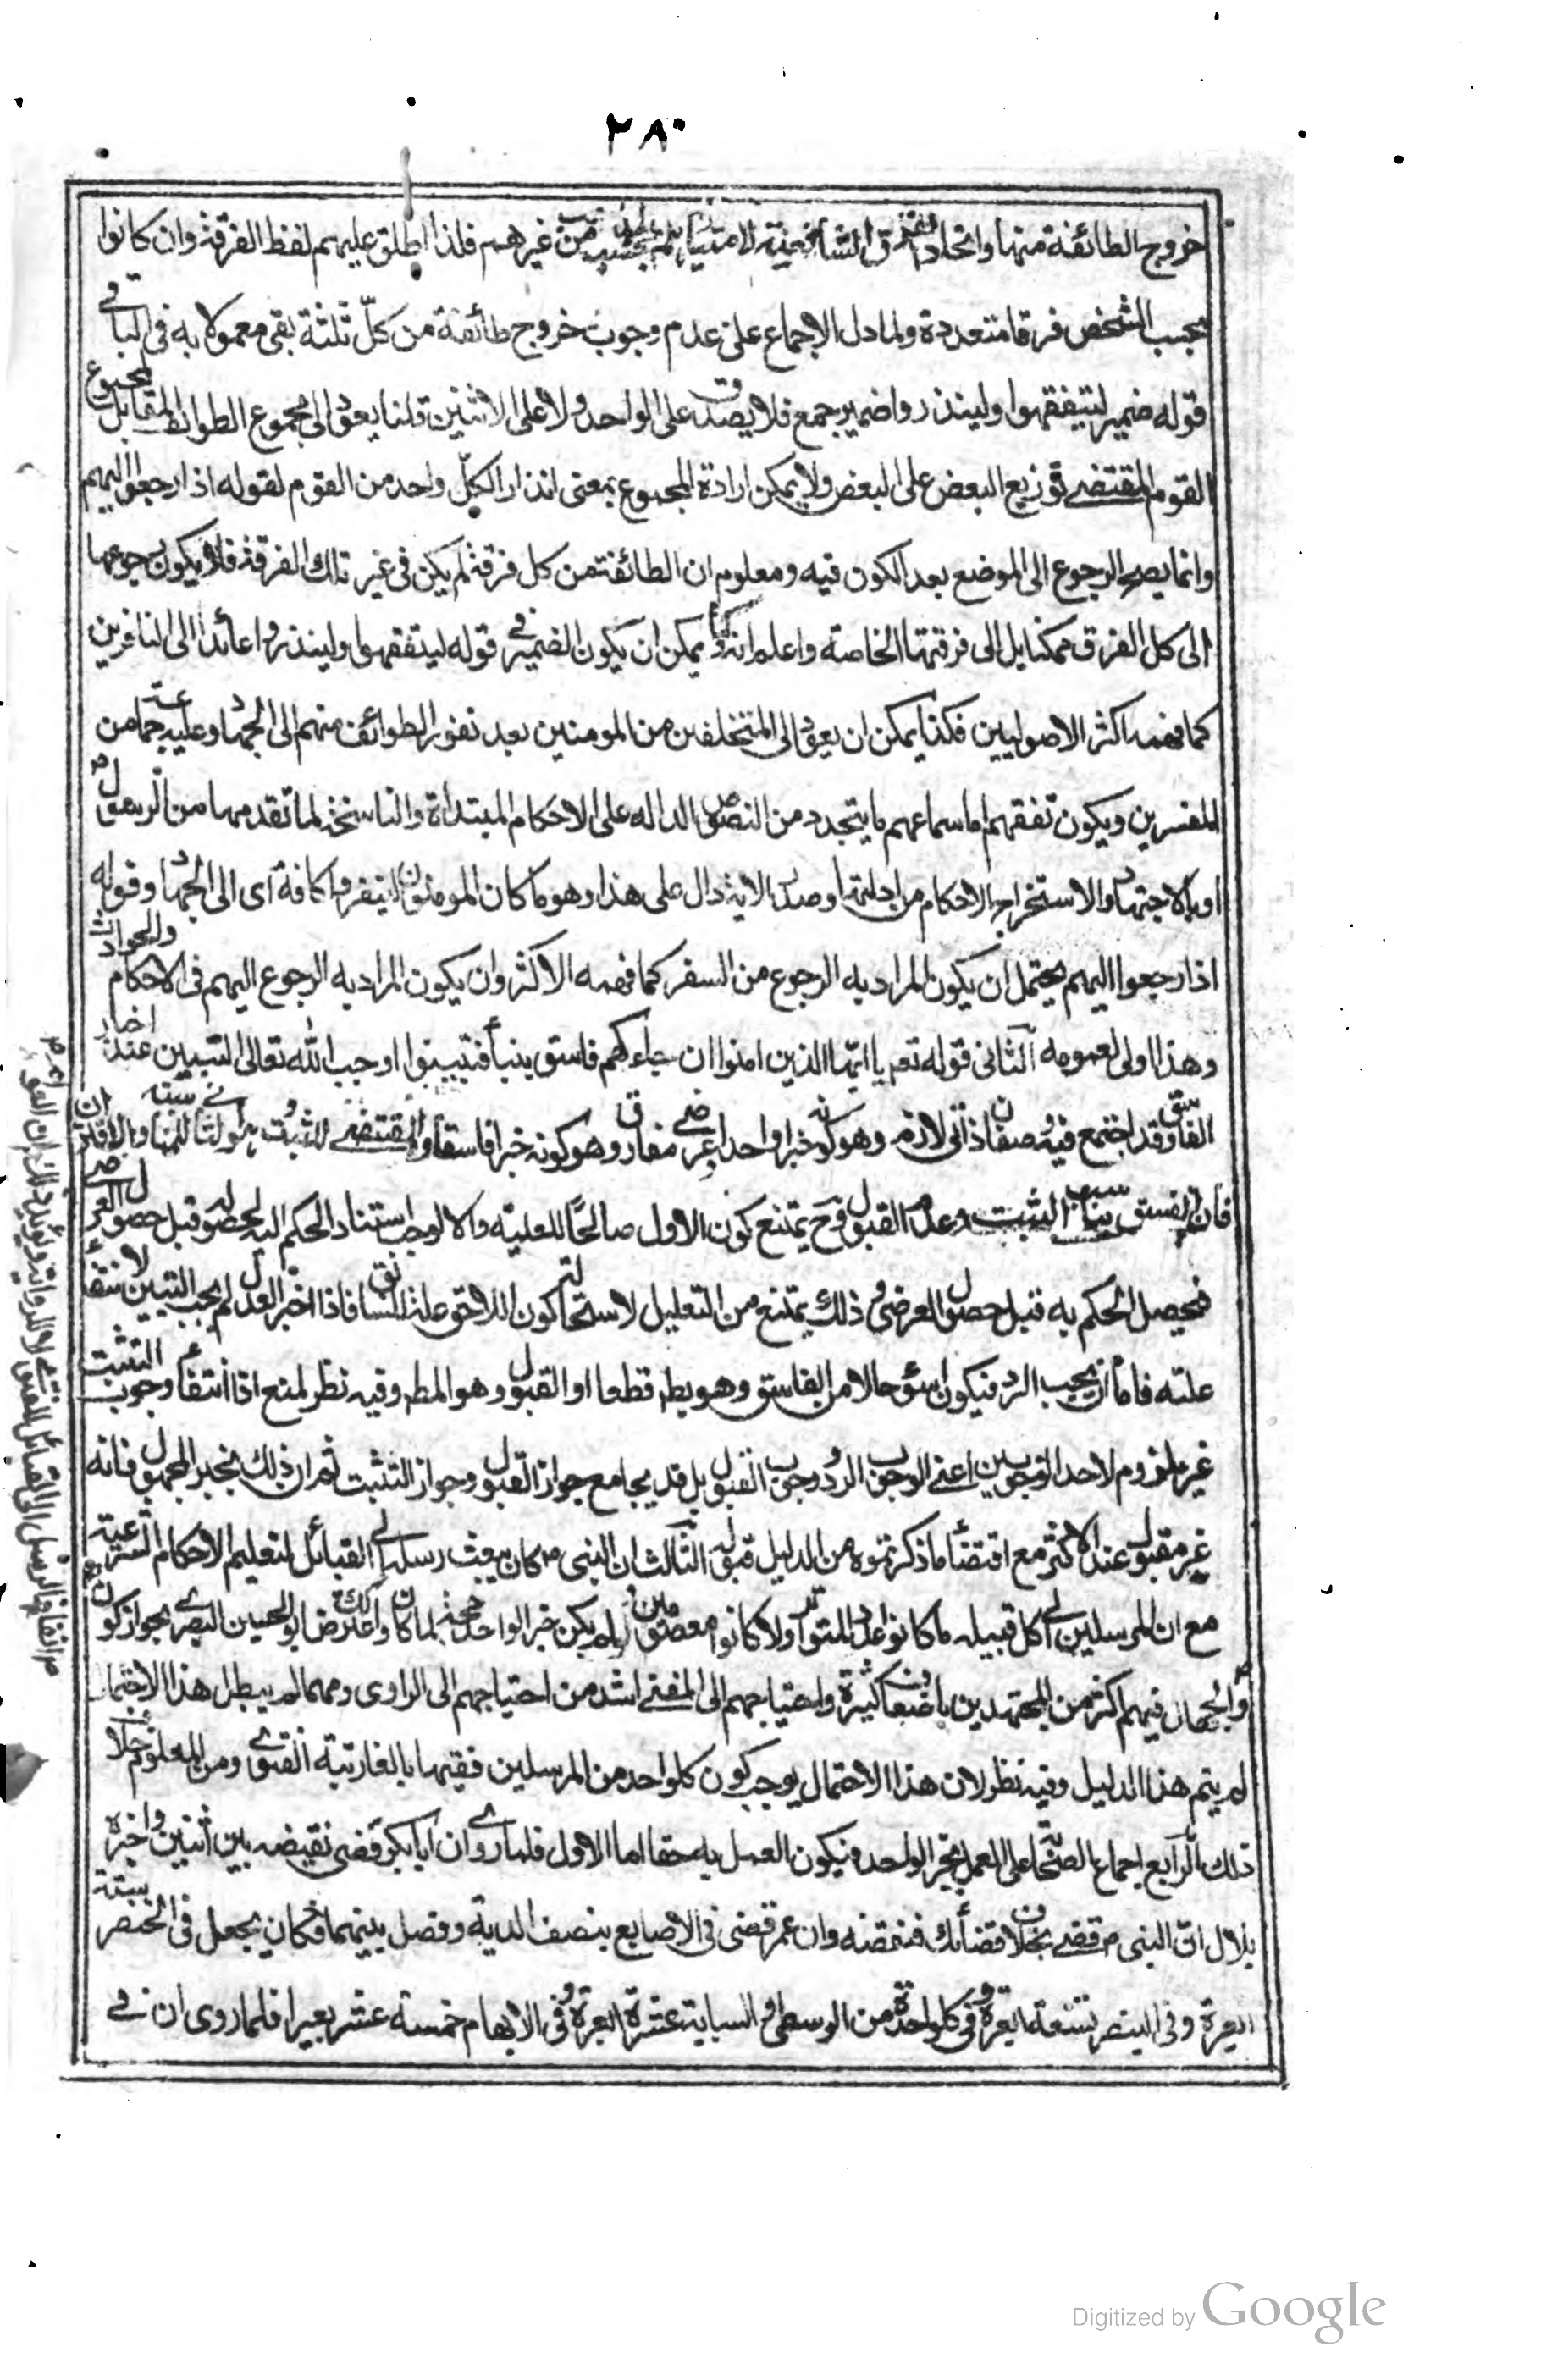 ٢٨٠
خروج الطائفة منها واتحاد الشافعية لامتيازهم من غيرهم فلذا اطلق عليهم لفظ الفرقة وان كانوا
بحسب الشخص فرقا متعددة ولما دل الاجماع على عدم وجوب خروج طائفة من كلّ ثلثة بقى معمولا به فى الباقي
قوله ضمير ليتفقهوا ولينذروا ضمير جمع فلا يصدق على الواحد ولا على الاثنين قلنا يعود الى مجموع الطوائف المقابل لمجموع
القوم المقتضے توزيع البعض على البعض ولا يمكن ارادة المجموع بمعنى انذار الكلّ واحد من القوم لقوله اذا رجعوا اليهم
وانما يصح الرجوع الى الموضع بعد الكون فيه ومعلوم ان الطائفة من كل فرقة لم يكن فى غير تلك الفرقة فلا يكون رجوعها
الى كل الفرق ممكنا بل الى فرقتها الخاصة واعلم انه كما يمكن ان يكون الضمير فے قوله ليتفقهوا ولينذروا عائدا الى النافرين
كما فهمه اكثر الاصوليين فكذا يمكن ان يعود الى المتخلفين من المومنين بعد نفور الطوائف منهم الى الجهاد وعليه جماعة من
المفسرين ويكون تفقههم اما سماعهم ما يتجدد من النصوص الداله على الاحكام المبتداة والناسخة لما تقدمها من الرسول ص
او بالاجتهاد والاستخراج الاحكام من ادلتها وصدر الاية دال على هذا وهو ما كان المومنون لينفروا كافة اى الى الجهاد وقوله
اذا رجعوا اليهم يحتمل ان يكون المراد به الرجوع من السفر كما فهمه الاكثر وان يكون المراد به الرجوع اليهم فى الاحكام والحوادث
وهذا اولى لعمومه الثانى قوله تعم يا ايها الذين امنوا ان جاءكم فاسق بنبأ فتبينوا اوجب الله تعالى التبيين عند اخبار
الفاسق وقد اجتمع فيه صفتان ذاتى لازم وهو كونه خبرا واحدا عرضے مفارق وهو كونه خبر فاسق والمقتضے للتثبت هو الثانى للمناسبة والاقتران
فان الفسق يناسب التثبت وعدم القبول وح يمتنع كون الاول صالحًا للعلية والا لوجب استناد الحكم اليه لحصوله قبل حصول العرضے
فيحصل الحكم به قبل حصول العرضى وذلك يمتنع من التعليل لاستحالة كون اللاحق علة للسابق فاذا اخبر العدل لم يجب التبيين لانتفاء
علته فاما ان يجب الرد فيكون اسوء حالا من الفاسق وهو بط قطعا او القبول وهو المط وفيه نظر لمنع اذا انتفاء وجوب التثبت
غير ملزوم لاحد الوجوبين اعنے الوجوب الرد ووجوب القبول بل قد يجامع جواز القبول وجواز التثبت ثم ان ذلك بخبر المجهول فانه
غير مقبول عند الاكثر مع اقتضاء ما ذكرتموه من الدليل قبوله الثالث ان النبى ص كان يبعث رسله الے القبائل لتعليم الاحكام الشرعية
مع ان المرسلين الے كل قبيله ما كانوا عدد التواتر ولا كانوا معصومين فلو لم يكن خبر الواحد حجة لما كان كذلك واعترض ابو الحسين البصرے بجواز كون
والجهال فيهم اكثر من المجتهدين باضعاف كثيرة واحتياجهم الى المفتے اشد من احتياجهم الى الراوى ومهما لم يبطل هذا الاحتمال
لم يتم هذا الدليل وفيه نظر لان هذا الاحتمال يوجب كون كل واحد من المرسلين فقيها بالغا رتبة الفتوے ومن المعلوم خلاف
ذلك الرابع اجماع الصحابة على العمل بخبر الواحد فيكون العمل به حقا اما الاول فلما روے ان ابا بكر قضى نقيضه بين اثنين واخبره
بلال ان النبى ص قضے بخلاف قضائك فنقضه وان عمر قضى فى الاصابع بنصف الدية وفصل بينهما فكان يجعل فى الخنصر ستة
ابعرة وفى البنصر تسعة ابعرة وفى كل واحدة من الوسطى و السبابة عشرة ابعرة وفى الابهام خمسة عشر بعيرا فلما روى ان فے
Digitized by Google